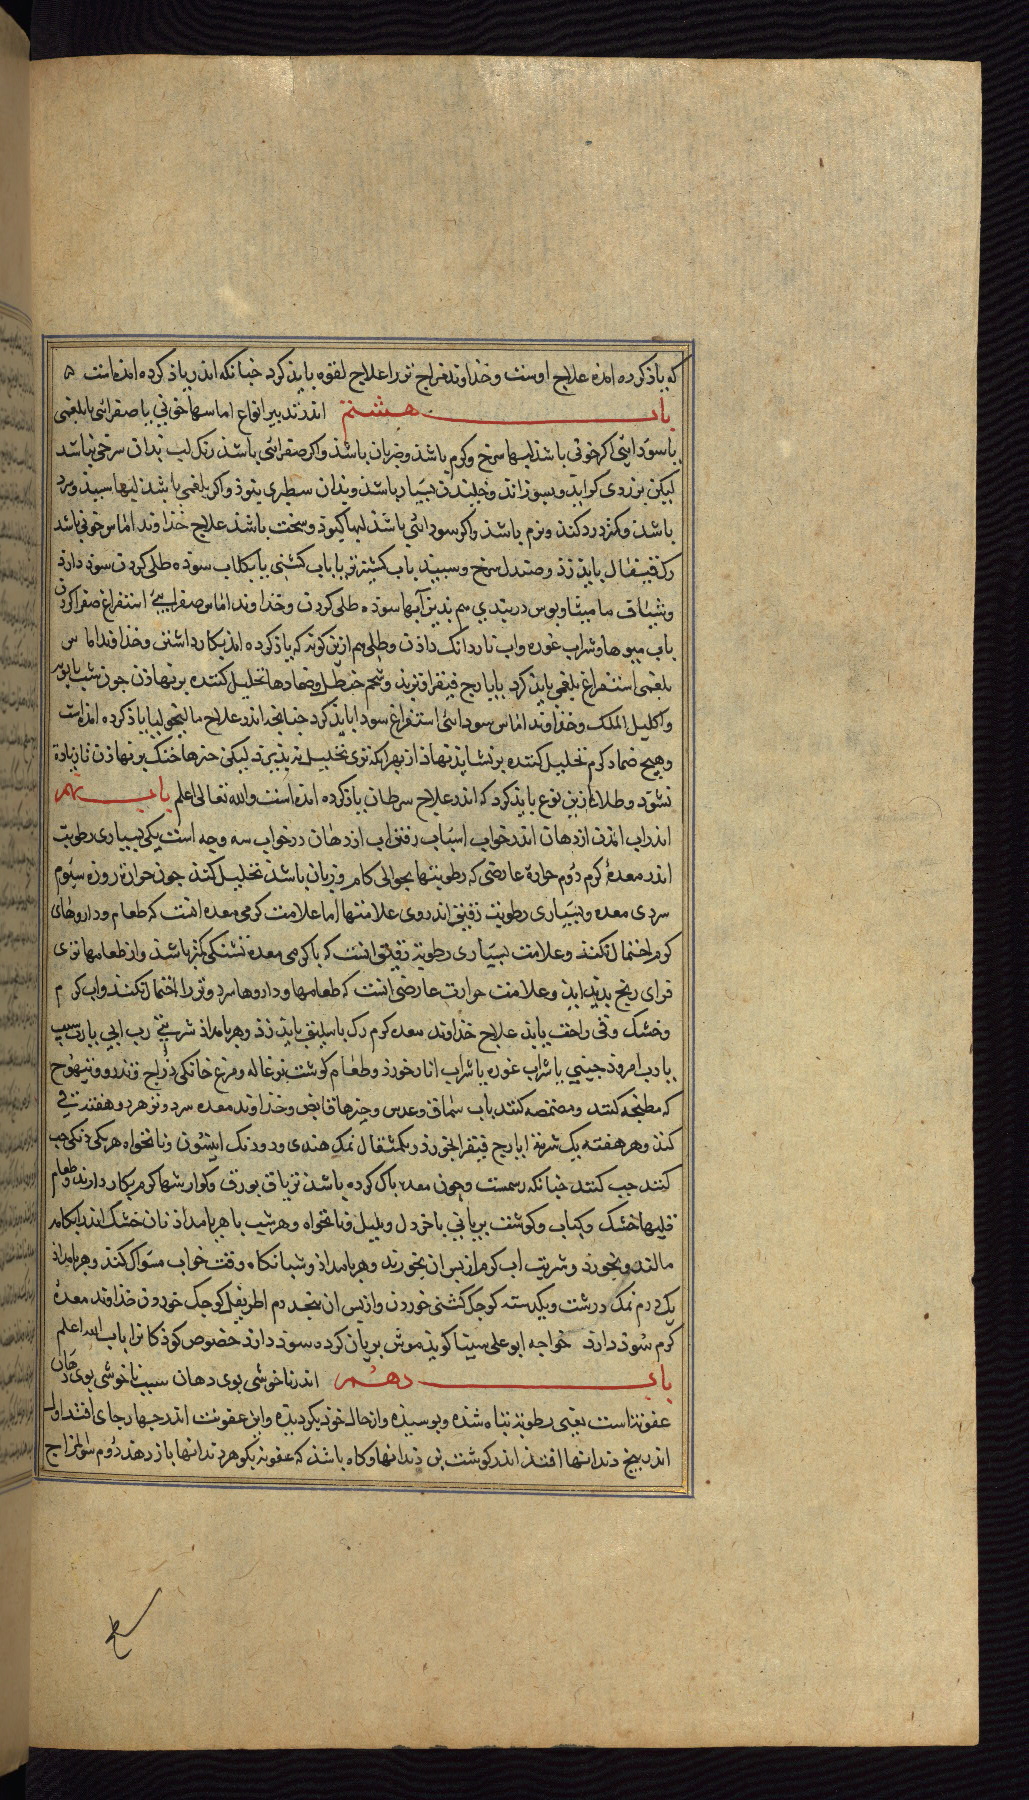 که یاذ کرده امذه علاج اوست وخذاوند فراج نورا علاج لقوه بایذ کرد جنانکه اندر یاذ کرده امذه است ه
باب هشتم اندر تدبیر انواع اماسها خونی یا صفرائی یا بلغمی
یا سودائی اکر خونی باشذ لبها سرخ وکرم باشذ وضربان باشذ واکر صفرائی باشذ رنک لب بذان سرخی نباشد
لیکن بزردی کراید وبسوزاند وخلیدن بسیار باشذ وبذان سطبری نبوذ واکر بلغمی باشذ لبها سبید وسرد
باشد وکمتر درد کند ونرم باشذ واکر سودائی باشذ لبها کبوذ وسخت باشذ علاج خذاوند اماس خونی باشد
رک قیفال بایذ زذ وصندل سرخ وسبید باب کشنیز تر یا باب کشنی یا بکلاب سوذه طلی کردن سوذ دارد
وشیاف مامیثا وبوس دربندی هم بذین آبها سوذه طلی کردن وخذاوند اماس صفرایی استفراغ صفرا کردن
باب میوها وشراب غوره واب ناردانک داذن وطلی هم ازین کونه که یاذ کرده اند بکار داشتن وخذاوند اماس
بلغمی استفراغ بلغمی بایذ کرد بایارج فیقرا وتربذ وشحم حنظل وضمادها تحلیل کننده برنهاذن جون شب بابونه
واکلیل الملک وخذاوند اماس سودائی استفراغ سودا بایذ کرد جنانجه اندر علاج مالیخولیا یاذ کرده امذه است
وهیج ضماد کرم تحلیل کننده برنشایذ نهاذ از بهر انکه تری تحلیل بذیرذ لیکن جیزها خنک برنهاذن تا زیادة
نشوذ وطلاها ازین نوع بایذ کرد که اندر علاج سرطان یاذ کرده امذه است والله تعالی اعلم باب نهم
اندر اب امذن از دهان اندر خواب اسباب رفتن اب از دهان در خواب سه وجه است یکی بسیاری رطوبت
اندر معدهٔ کرم دوم حرارة عارضی که رطوبتها بحوالی کام وزبان باشذ تحلیل کند جون حرارة روزه سیوم
سردی معده وبسیاری رطوبت رقیق اندروی علامتها اما علامت کرمی معده انست که طعام وداروهای
کرم احتمال نکند وعلامت بسیاری رطوبة رقیق انست که با کرمی معده تشنکی کمتر باشذ واز طعامها تری
فزای رنج بدید ایذ وعلامت حرارت عارضی انست که طعامها وداروها سرد وتر را احتمال نکند واب کرم
وخشک وقی راحت یابذ علاج خذاوند معده کرم رک باسلیق بایذ زذ وهر بامداذ شربتی رب ابی یا رب سیب
یا رب امروذ جینی یا شراب غوره یا شراب انار خورذ وطعام کوشت بزغاله ومرغ خانکی ودراج وتذرو وتیهوج
که مطنجنه کنند ومضمضه کنند باب سماق وعدس وجیزها قابض وخذاوند معده سرد وتر هر دو هفته قی
کند وهر هفته یک شربة ایارج فیقرا خورذ ویکمثقال نمک هندی ودو دنک انیسون ونانخواه هریکی دنکی حب
کنند حب کنند جنانکه رسمست وجون معده باک کرده باشذ تریاق بورق وکوارشها کرم بکار دارند وطعام
قلیها خشک وکباب وکوشت بریانی با خردل وبلبل ونانخواه وهر شب یا هر بامداذ نان خشک اندر ابکامه
مالند وبخورد وشربت اب کرم از بس ان بخورند وهر بامداذ وشبانکاه وقت خواب مسواک کند وهر بامداذ
یک درم نمک درشت ویکدسته کوجک کشنی خوردن واز بس ان بنجدرم اطریفل کوجک خوردن خذاوند معدهٔ
کرم سوذ دارد خواجه ابوعلی سینا کوید موش بریان کرده سوذ دارد خصوص کوذکانرا باب الله اعلم
باب دهم اندر ناخوشی بوی دهان سبب ناخوشی بوی دهان
عفونتاست یعنی رطوبة تباه شذه وبوسیذه واز حال خوذ بکردیذه واین عفونت اندر جهار جای افتذ اول
اندر بیخ دندانها افتذ اندر کوشت بن دندانها وکاه باشذ که عفونة بکوهر دندانها باز دهد دوم سوالمزاج